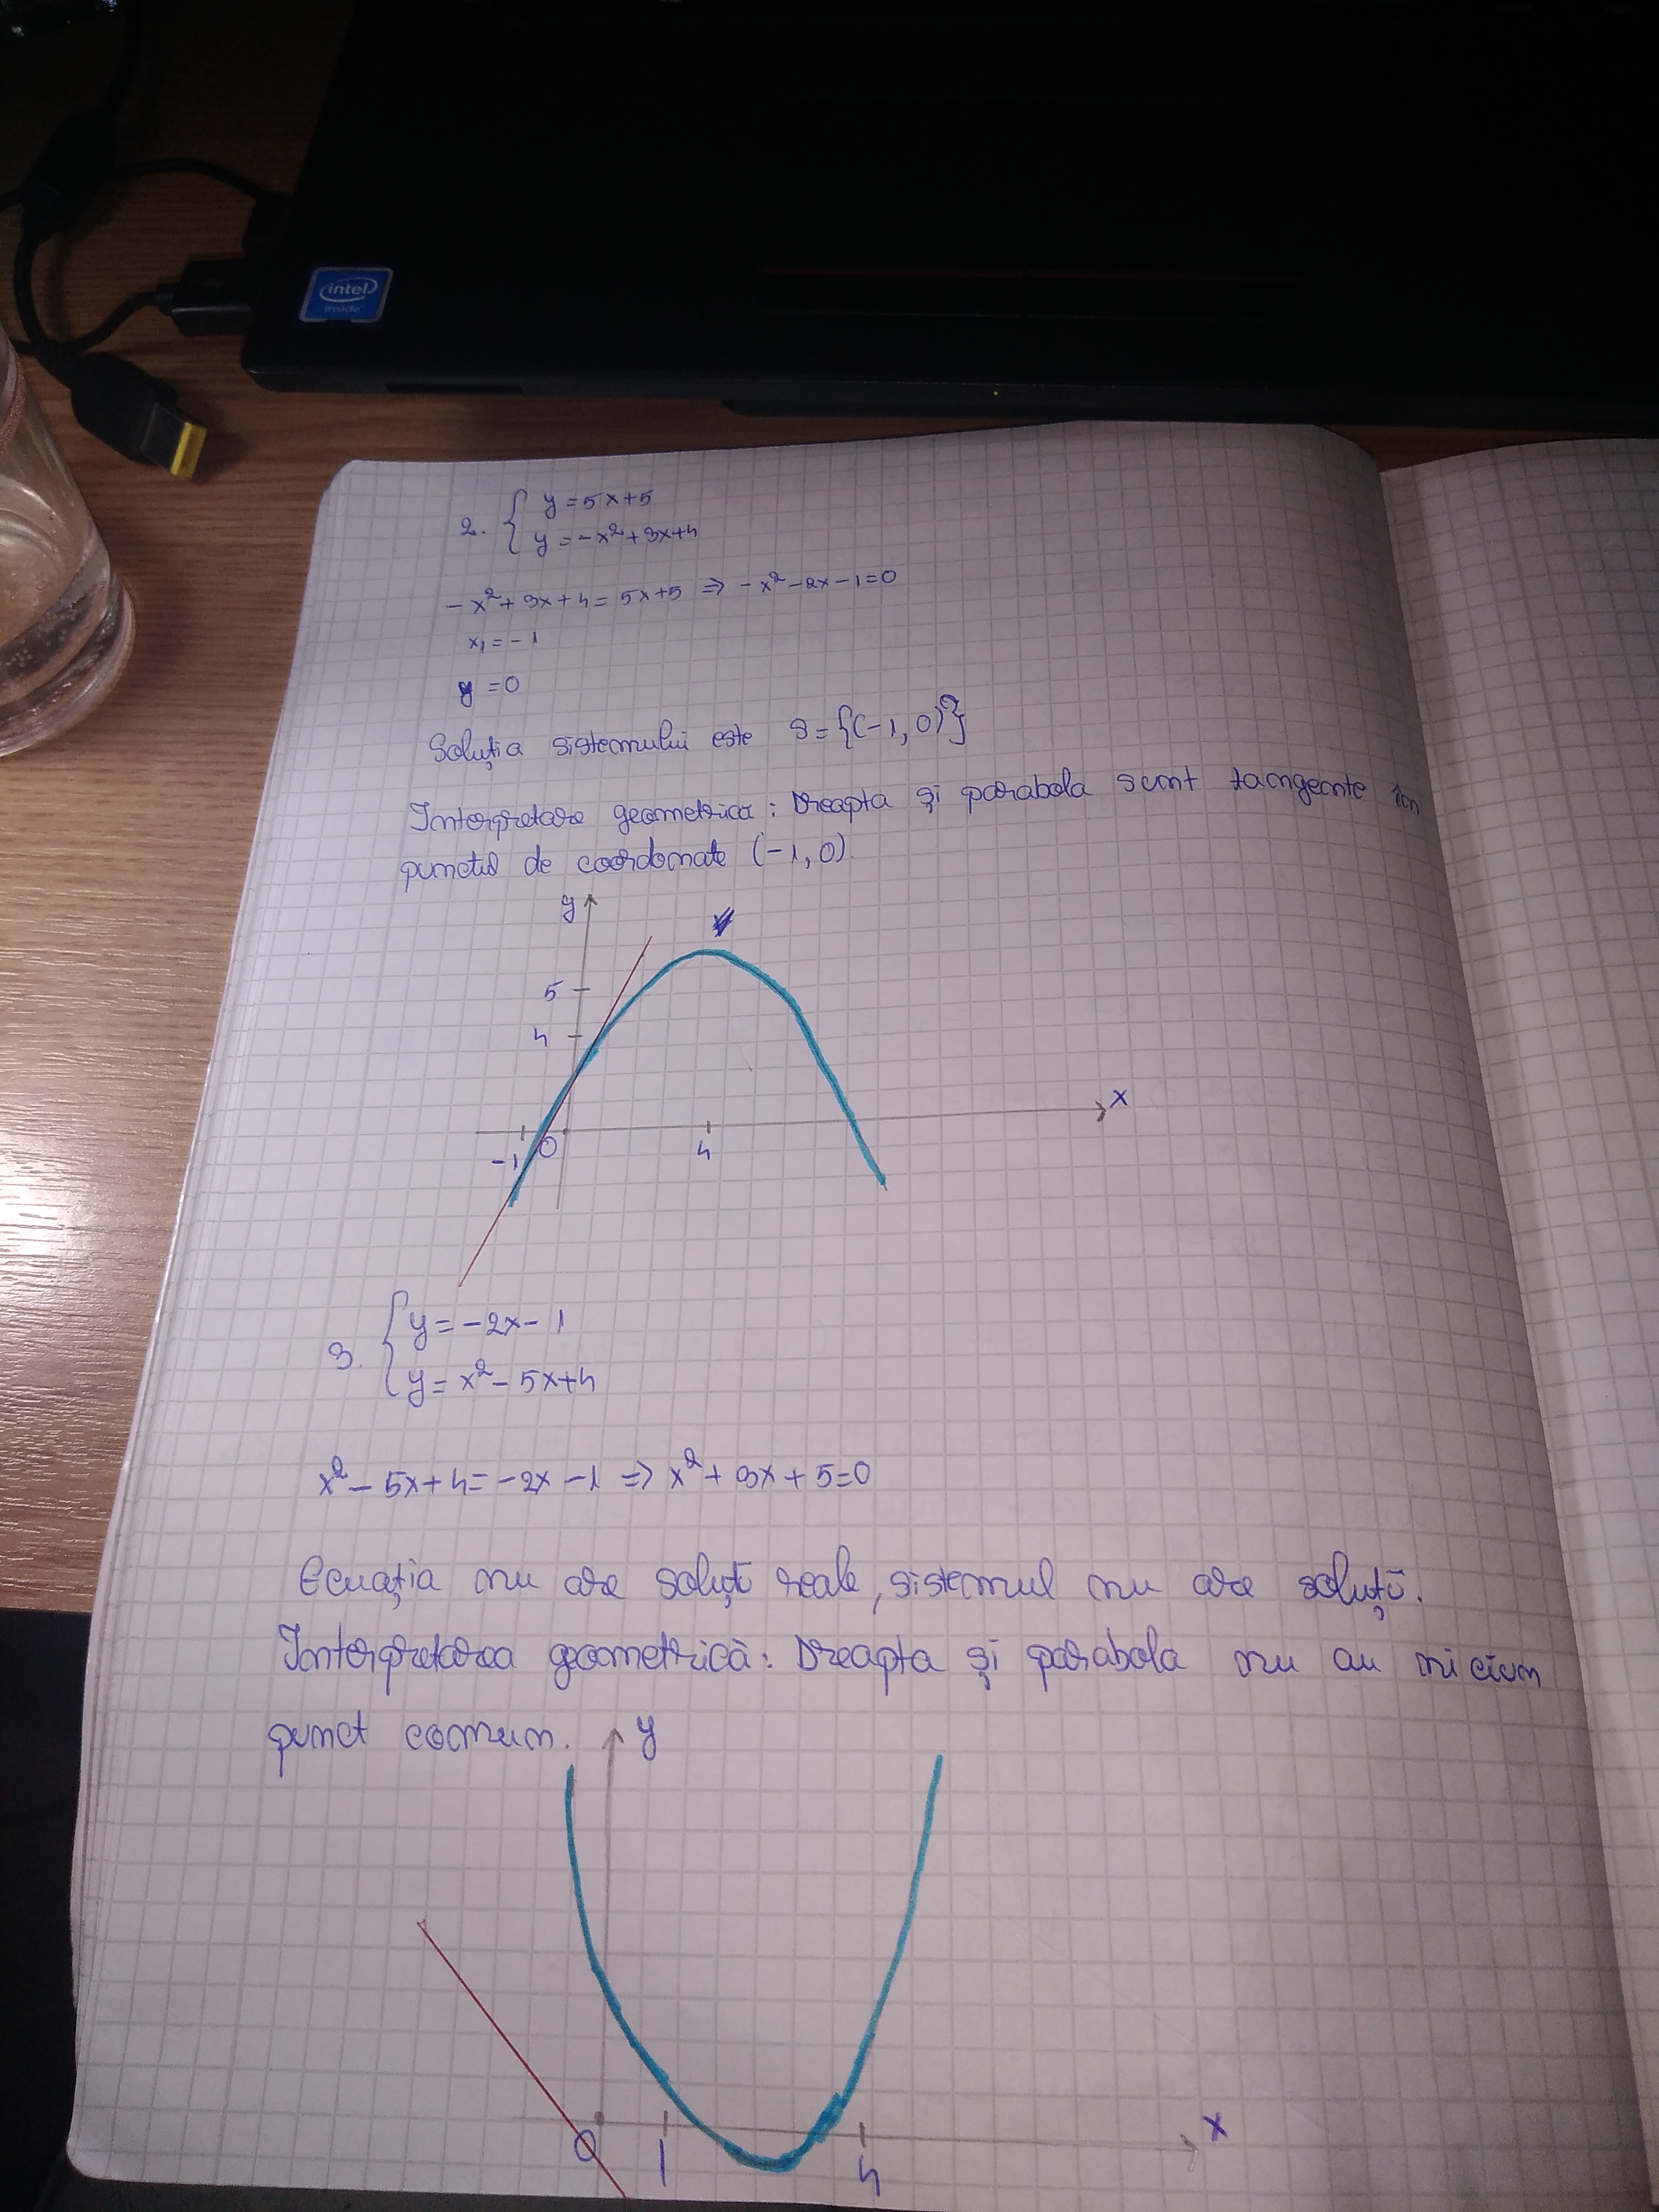 intel
inside
2. { y = 5x+5
y = -x²+3x+4
-x²+3x+4 = 5x+5 => -x²-2x-1=0
x₁=-1
y =0
Soluția sistemului este S={(-1,0)}
Interpretare geometrică: Dreapta și parabola sunt tangente în
punctul de coordonate (-1,0)
y
5
4
x
-1 0 4
3. { y=-2x-1
y=x²-5x+4
x²-5x+4=-2x-1 => x²+3x+5=0
Ecuația nu are soluții reale, sistemul nu are soluții.
Interpretarea geometrică: Dreapta și parabola nu au niciun
punct comun.
y
x
0 1 4